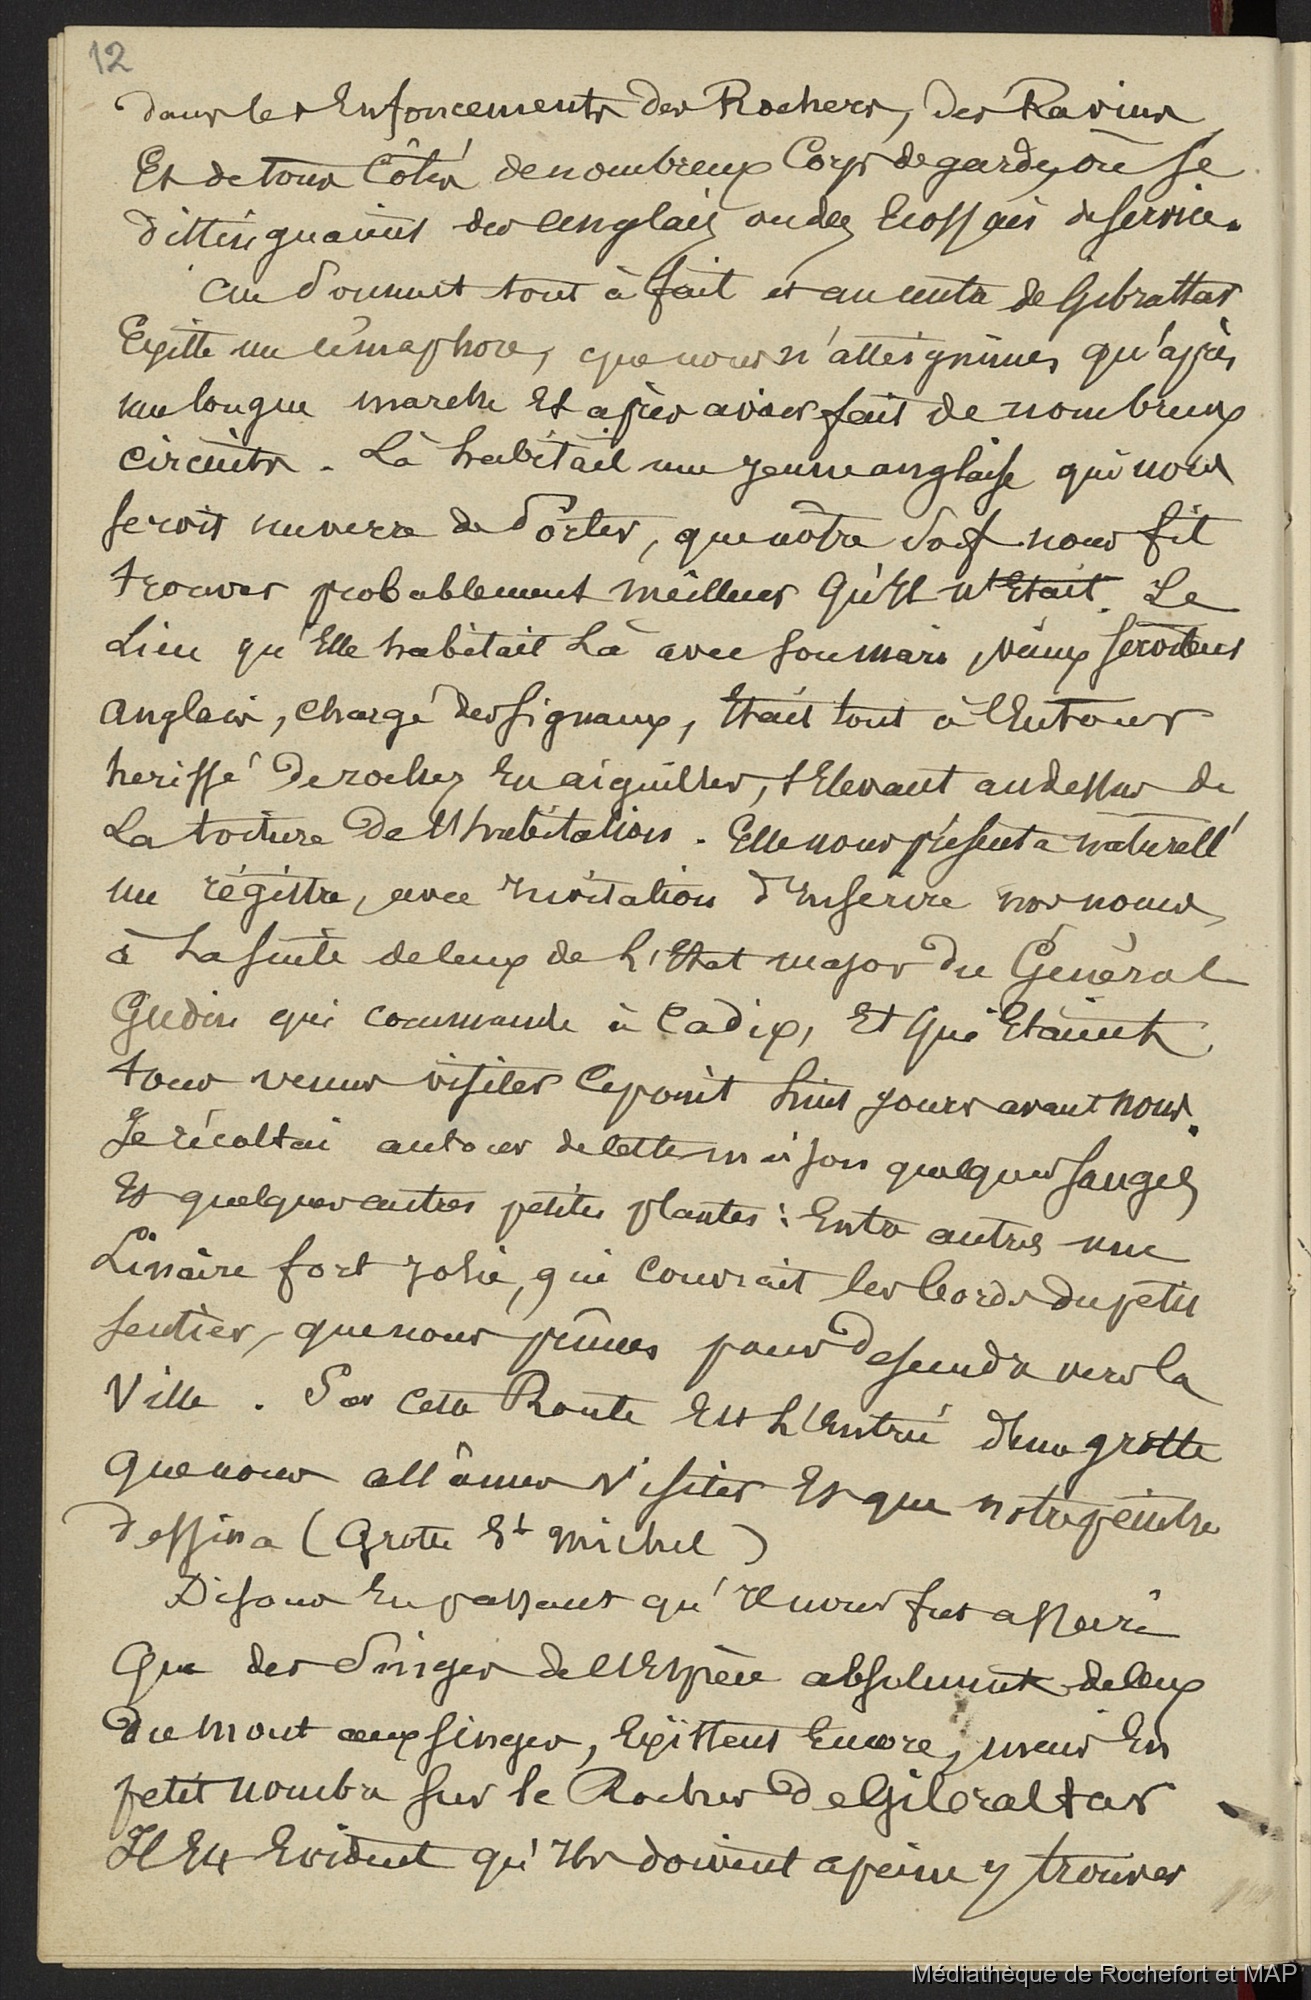 12
dans les Enfoncements des Rochers, des Ravins
Et de tous Côtés de nombreux Corps de garde, où se
distinguaient des anglais ou des Ecossais de service.
Au Sommet tout à fait et au centre de Gibraltar
Existe un sémaphore, que nous n'atteignimes qu'après
une longue marche Et après avoir fait de nombreux
circuits. Là habitait une jeune anglaise qui nous
servit un verre de Porter, que nôtre soif nous fit
trouver probablement meilleur Qu'Il n'Etait. Le
Lieu qu'Elle habitait Là avec son mari, vieux serviteur
anglais, chargé des signaux, Etait tout à l'Entour
herissé De rochers En aiguilles, s'Elevant au dessus de
La toiture De l'habitation. Elle nous présenta naturellt
un régistre, avec Invitation d'Inscrire nos noms,
à La suite de ceux de L'Etat major du Général
Gudin qui commande à Cadix, Et Qui Etaient
tous venus visiter Ce point huit jours avant nous.
Je récoltai autour de cette maison quelques sauges
Et quelques autres petites plantes : Entre autres une
Linaire fort jolie, qui Couvrait les bords du petit
sentier, que nous prîmes pour Descendre vers la
Ville. Sur Cette Route Est L'Entrée d'une grotte
Que nous allâmes Visiter Et que notre peintre
dessina (Grotte St Michel)
Disons En passant qu'Il nous fut assuré
Que des Singes de l'Espèce absolument de ceux
Du Mont aux singes, Existent Encore, mais En
petit nombre sur le Rocher De Gibraltar
Il Est Evident qu'Ils doivent a peine y trouver
Médiathèque de Rochefort et MAP